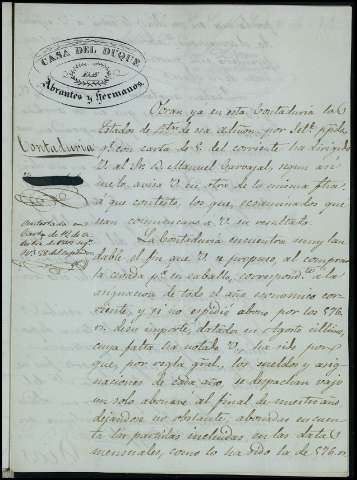 CASA DEL DUQUE
DE
Abrantes y Hermanos.
Contaduria
Contestada en
carta de
Obran ya en esta Contaduria los
Estados de de esa admon. por Set.e
q.e con carta de 5 del corriente ha dirigido
V. al Sr. D. Manuel Carvajal, segun asi
me lo avisa V. en otra de la misma fha.
a que contesto, los que, ecsaminados que
sean comunicaré a V. su resultado.
La Contaduria encuentra muy lau
dable el fin que V. se propuso, al comprar
la cebada p.a su caballo, correspond.te a la
asignacion de todo el año economico cor-
riente, y no espidió abono por los 576
rs. de su importe, datados en Agosto último,
cuya falta ha notado V., ha sido por-
que, por regla gral., los sueldos y asig-
naciones de cada año, se despachan vajo
un solo abonaré al final de nuestro año
dejándose no obstante, abonadas en cuen-
ta las partidas incluidas en las datas
mensuales, como lo ha sido la de 576 rs